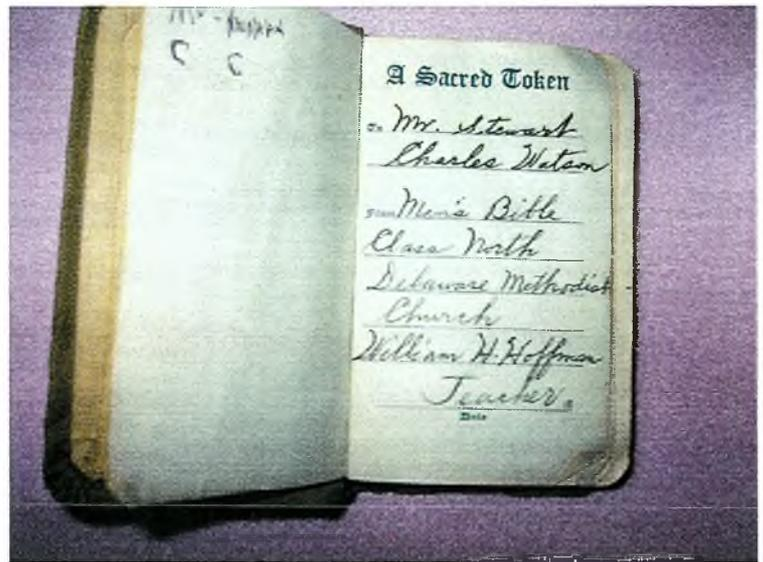 C C
A Sacred Token
To Mr. Stewart
Charles Watson
From Men's Bible
Class North
Delaware Methodist
Church
William H. Hoffman
Teacher.
Date